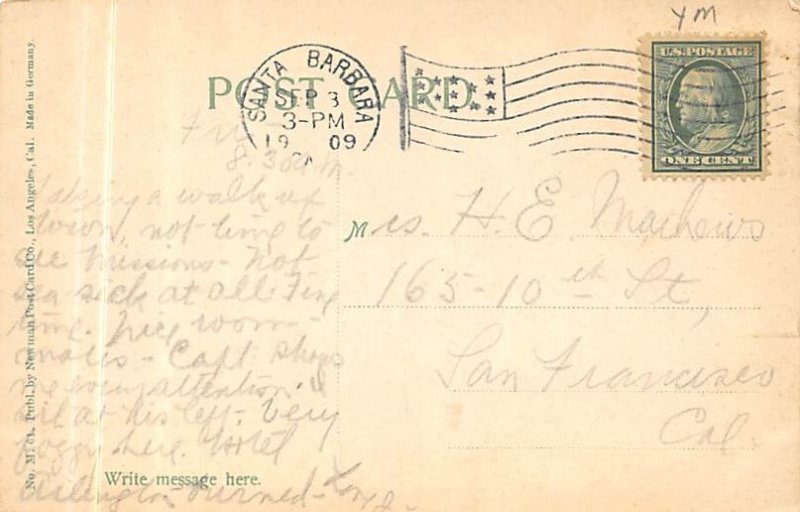 YM
U.S. POSTAGE
ONE CENT
POST CARD
SANTA BARBARA
SEP 3
3-PM
19 09
8.30 a.m.
Taking a walk up
town, not time to
see Missions - Not
sea sick at all. Fine
time. Nice room-
mates - Capt. shows
me every attention. I
sit at his left. Very
foggy here. Hotel
Arlington burned -
Mrs. H. E. Mathews
165 - 10th St,
San Francisco
Cal.
Write message here.
No. M. 61. Publ. by Newman Post Card Co., Los Angeles, Cal. Made in Germany.